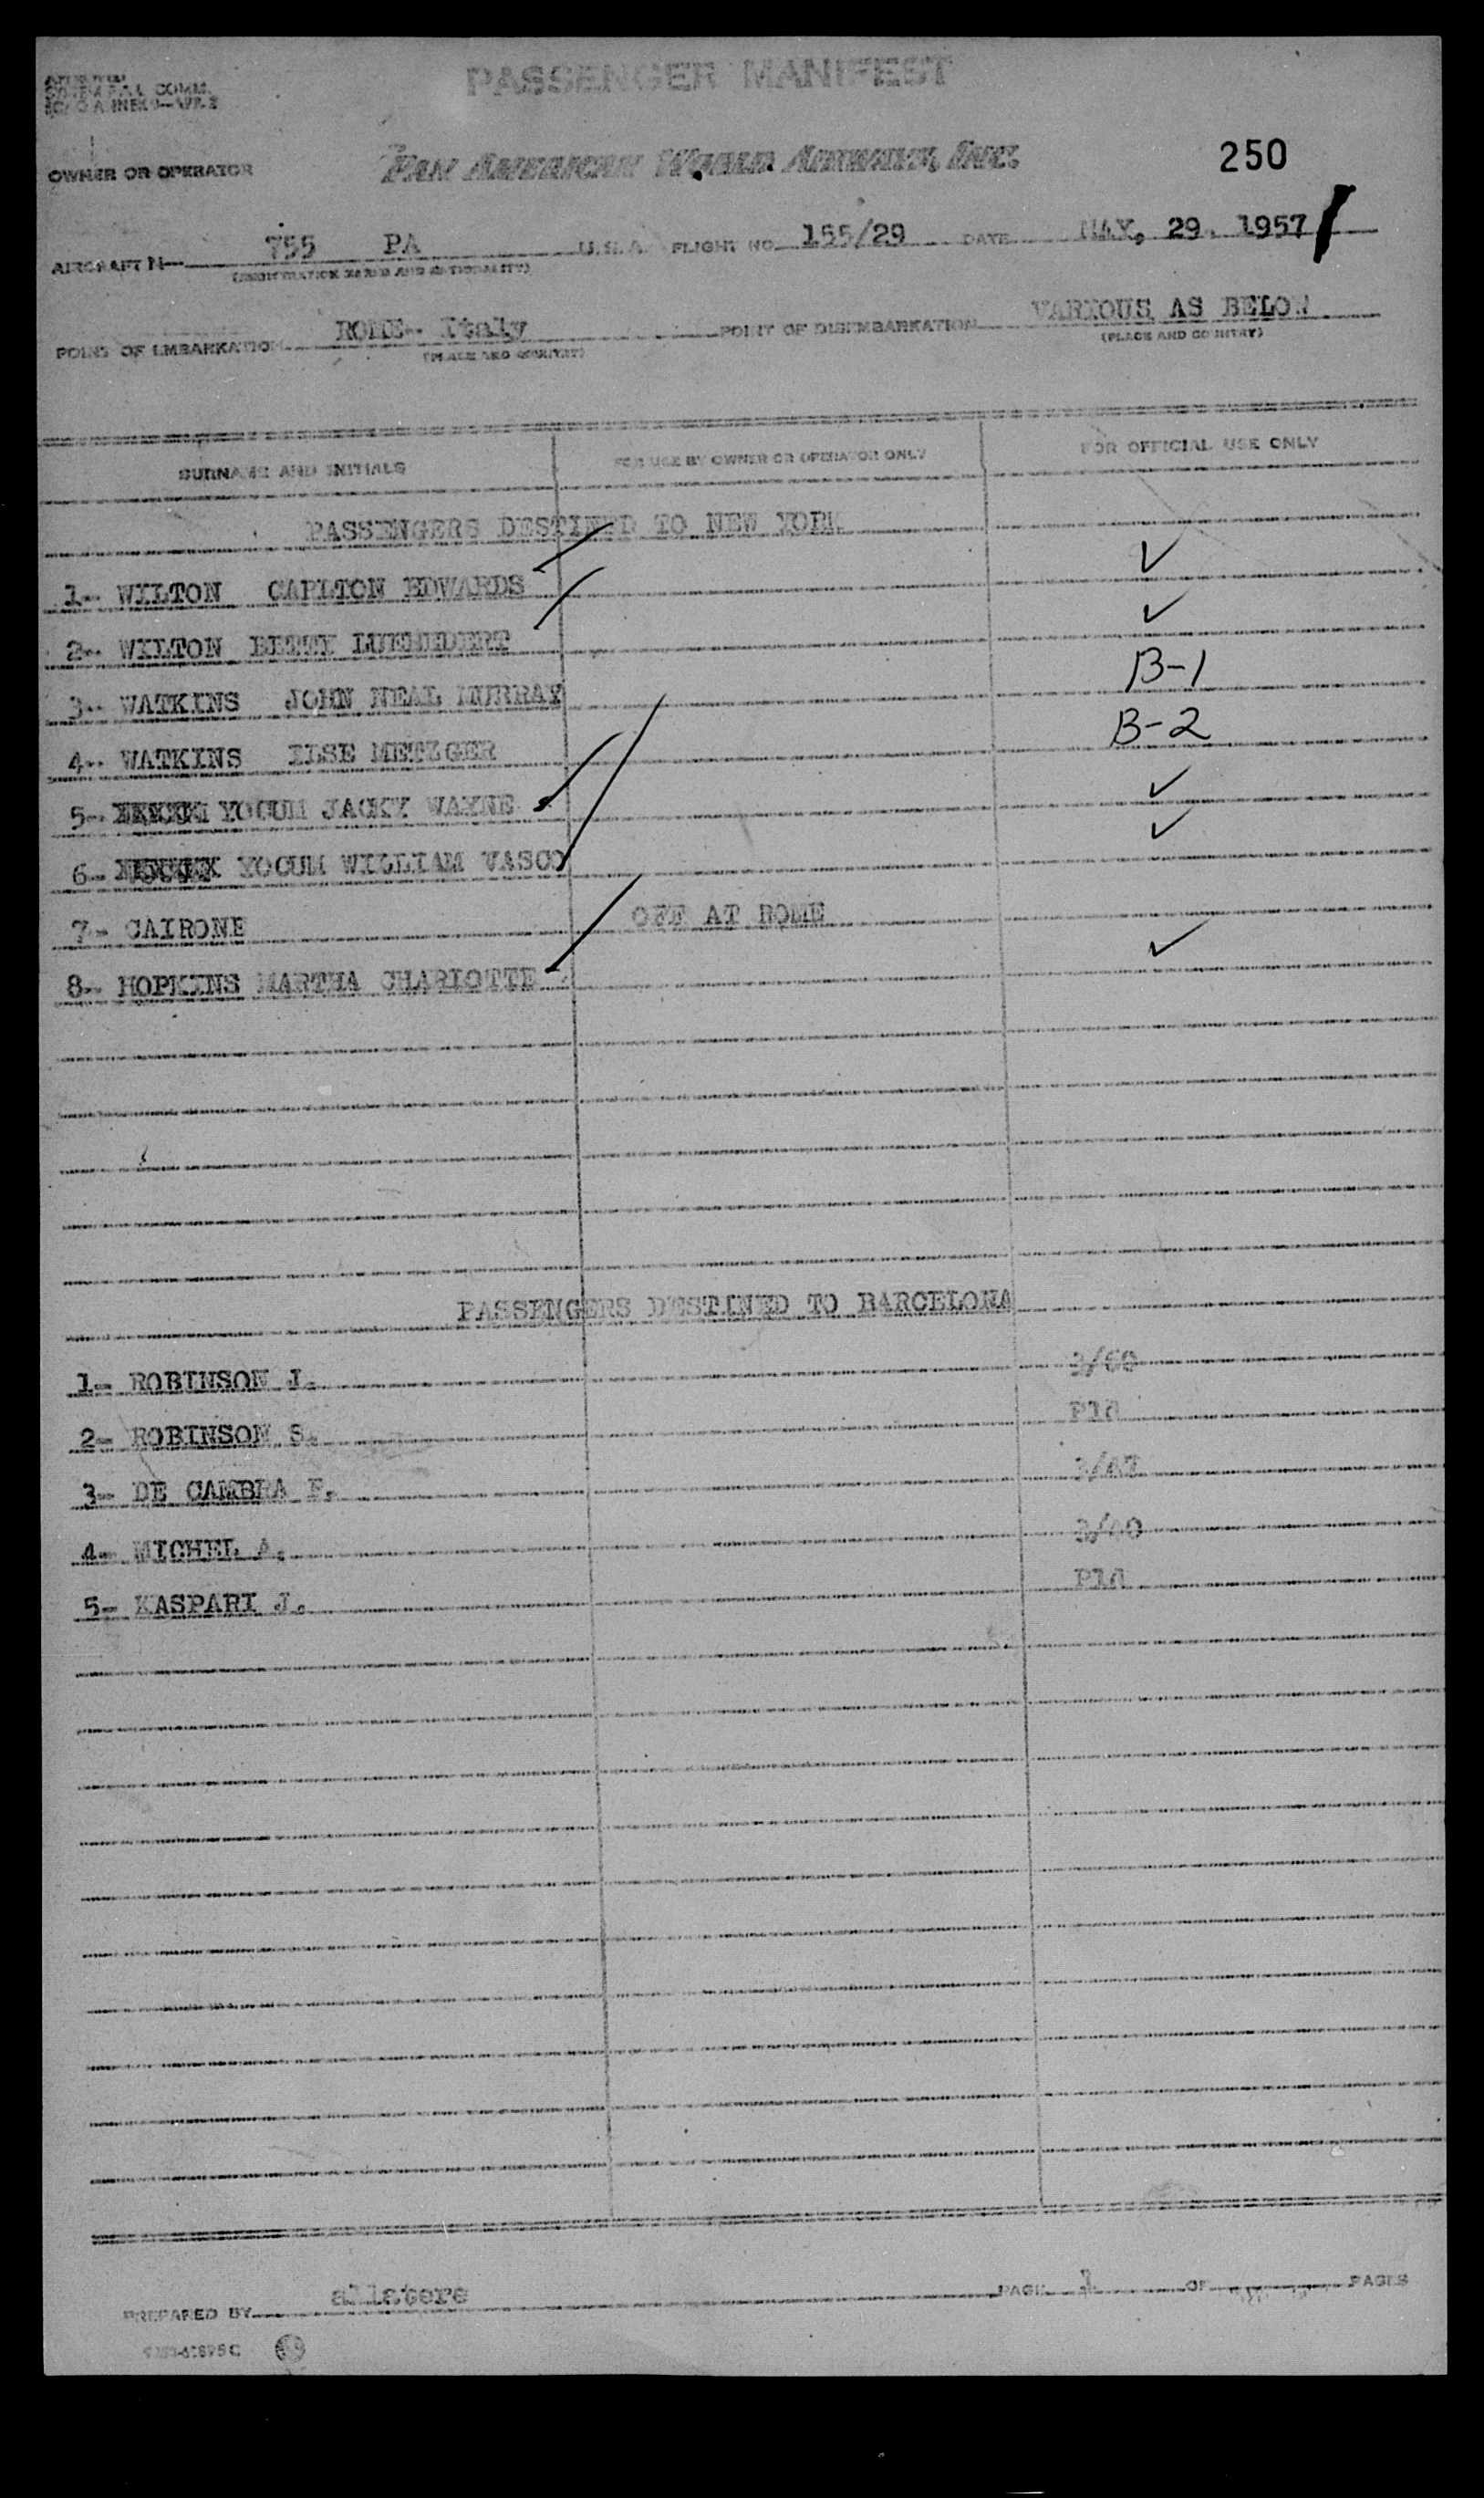 PASSENGER MANIFEST
COMM.
250
OWNER OR OPERATOR PAN AMERICAN WORLD AIRWAYS, INC.
AIRCRAFT N— 755 PA U.S.A. FLIGHT NO. 155/29 DATE MAY, 29. 1957
(REGISTRATION MARKS AND NATIONALITY)
POINT OF EMBARKATION ROME- Italy POINT OF DISEMBARKATION VARIOUS AS BELOW
(PLACE AND COUNTRY) (PLACE AND COUNTRY)
SURNAME AND INITIALS FOR USE BY OWNER OR OPERATOR ONLY FOR OFFICIAL USE ONLY
PASSENGERS DESTINED TO NEW YORK
1- WILTON CARLTON EDWARDS ✓
2- WILTON BETTY ✓
3- WATKINS JOHN NEAL MURRAY B-1
4- WATKINS ILSE METZGER B-2
5- YOCUM JACKY WAYNE ✓
6- YOCUM WILLIAM VASCO ✓
7- CAIRONE OFF AT ROME
8- HOPKINS MARTHA CHARLOTTE ✓
PASSENGERS DESTINED TO BARCELONA
1- ROBINSON J.
2- ROBINSON S.
3- DE CAMBRA F.
4- MICHEL A.
5- KASPARI J.
PREPARED BY allatere PAGE 1 OF PAGES